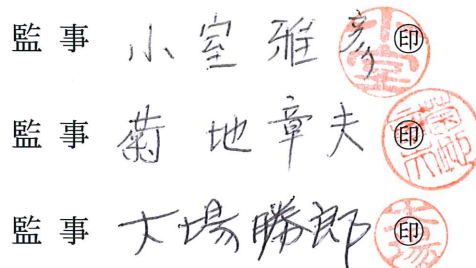 監事 小室雅彦 ㊞
監事 菊地章夫 ㊞
監事 大場勝郎 ㊞